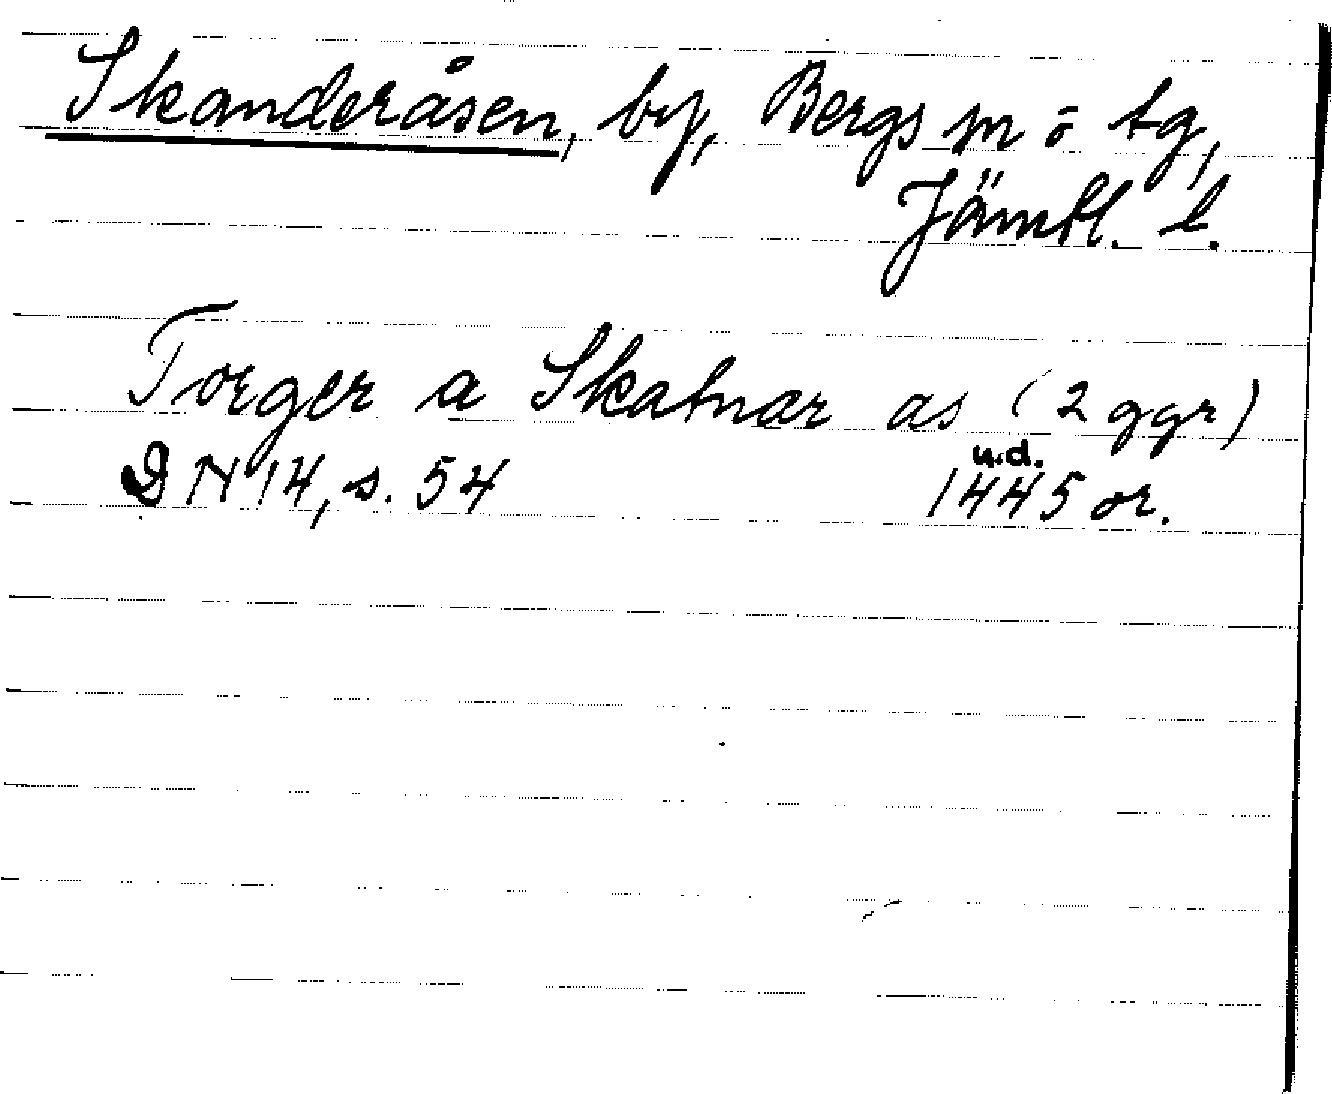 Skanderåsen, by, Bergs sn o tg,
Jämtl. l.
Torger a Skatnar as (2 ggr)
u.d.
DN 14, s. 54 1445 or.